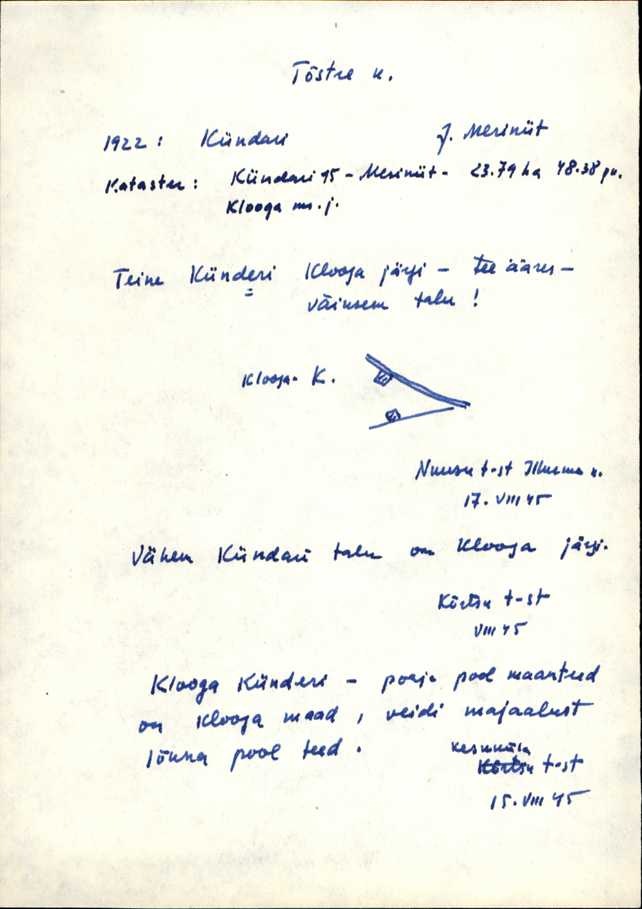 Tõstre k.
1922: Kündari J. Merinüt
Kataster: Kündari 15 - Merinüt - 23.79 ha 48.38 pu.
Klooga mn. j.
Teine Künderi Klooga järgi - tee ääres -
väiksem talu!
Klooga- K.
t-st k.
17. VIII 45
Vähem Kündari talu on Klooga järgi.
Kõrtsu t-st
VIII 45
Klooga Künderi - põhja pool maanteed
on Klooga maad, veidi majaalust
lõuna pool teed.
Keskküla
Kõrtsu t-st
15. VIII 45